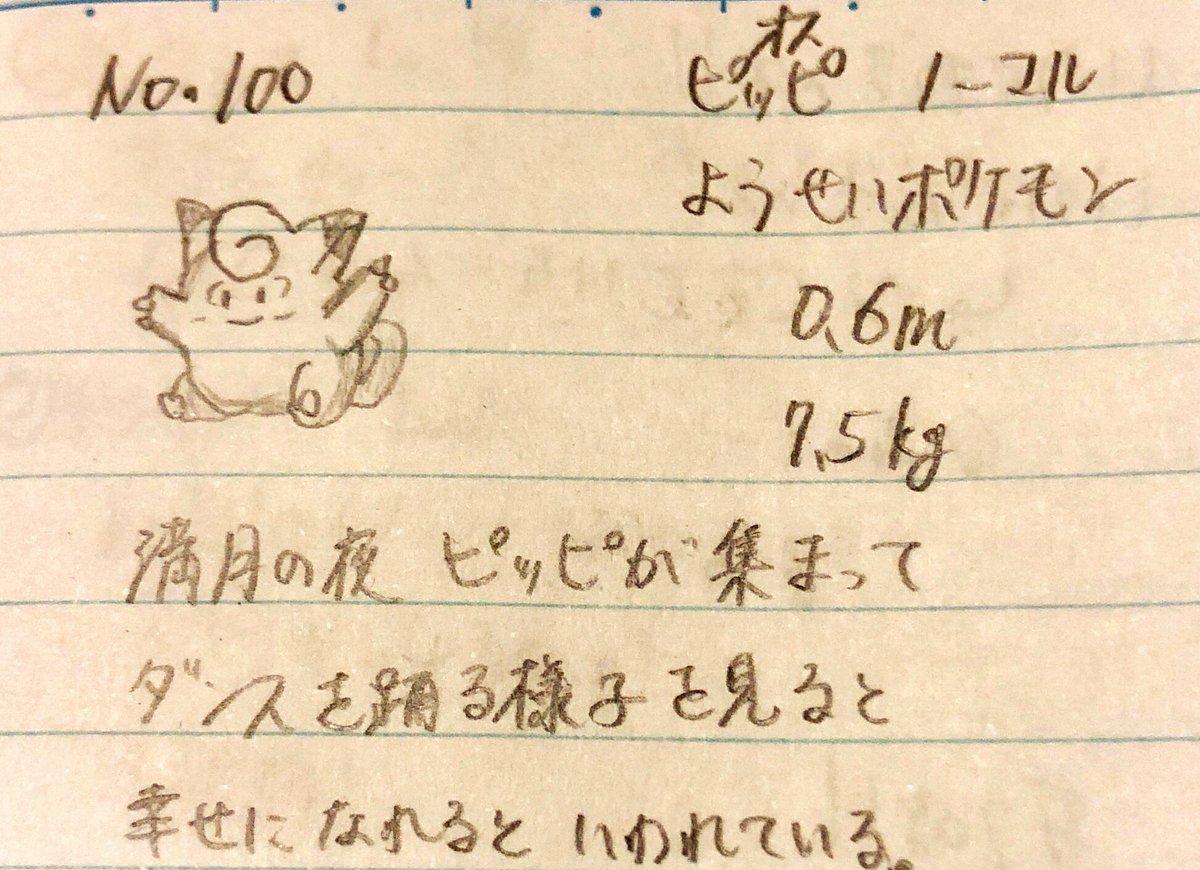 No.100
オス
ピッピ ノーコル
ようせいポケモン
0.6m
7.5kg
満月の夜 ピッピが集まって
ダンスを踊る様子を見ると
幸せになれると いわれている。